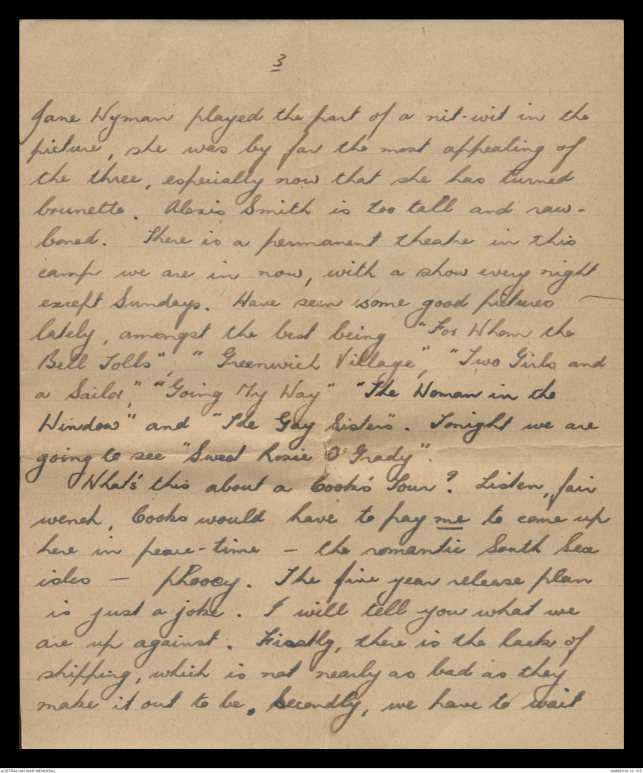 3
Jane Wyman played the part of a nit-wit in the
picture, she was by far the most appealing of
the three, especially now that she has turned
brunette. Alexis Smith is too tall and raw-
boned. There is a permanent theatre in this
camp we are in now, with a show every night
except Sundays. Have seen some good pictures
lately, amongst the best being "For Whom the
Bell Tolls", "Greenwich Village", "Two Girls and
a Sailor," "Going My Way" "The Woman in the
Window" and "The Gay Sisters". Tonight we are
going to see "Sweet Rosie O'Grady".
What's this about a Cook's Tour? Listen, fair
wench, Cooks would have to pay me to come up
here in peace-time - the romantic South Sea
isles - phooey. The five year release plan
is just a joke. I will tell you what we
are up against. Firstly, there is the lack of
shipping, which is not nearly as bad as they
make it out to be. Secondly, we have to wait
AUSTRALIAN WAR MEMORIAL